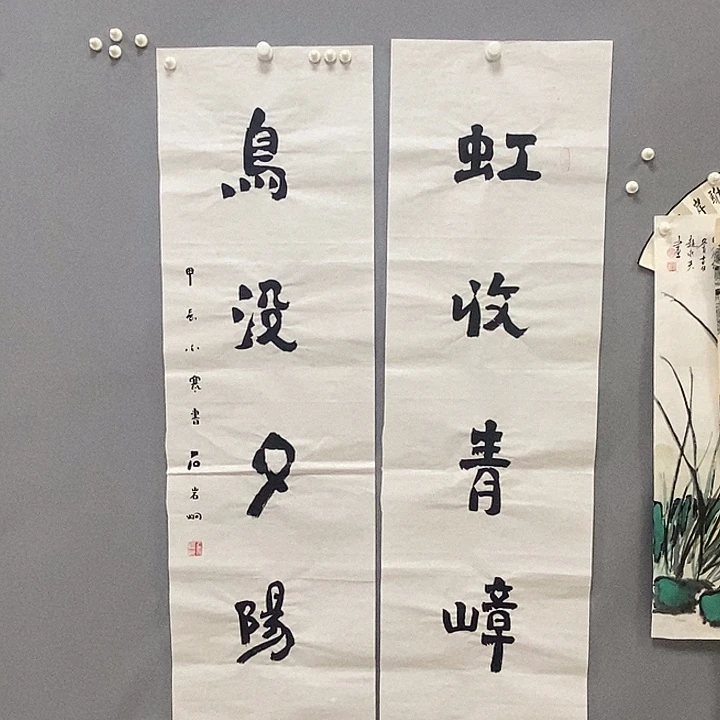 虹收青嶂
鳥没夕陽
甲辰小寒書 石岩炯